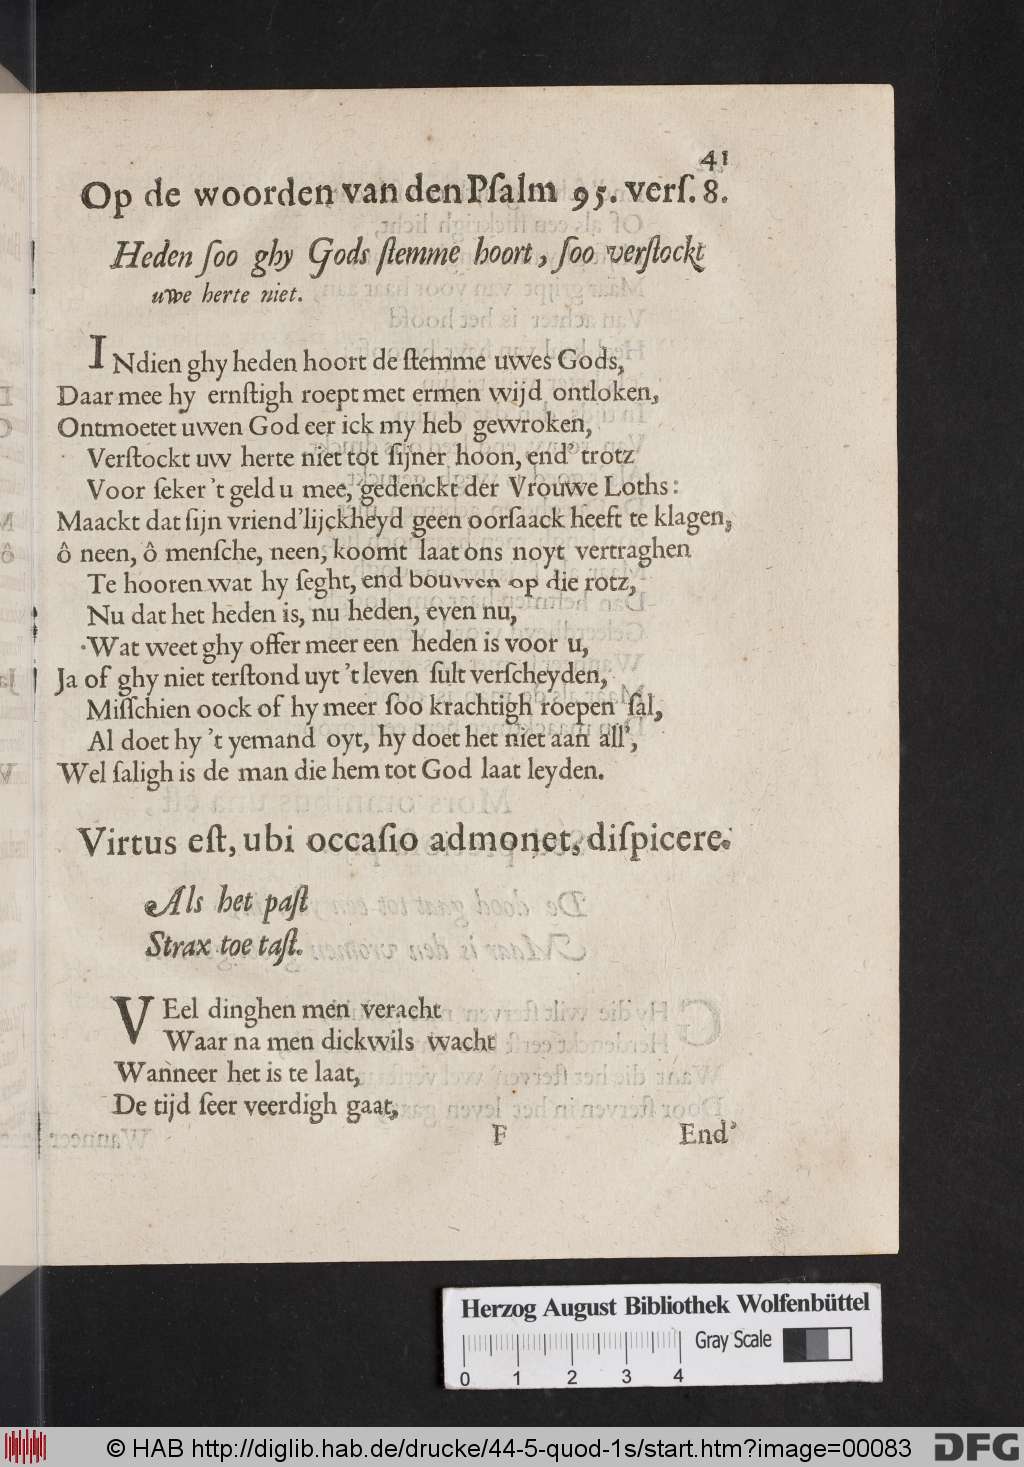 41
Op de woorden van den Pſalm 95. verſ. 8.
Heden ſoo ghy Gods ſtemme hoort, ſoo verſtockt
uwe herte niet.
INdien ghy heden hoort de ſtemme uwes Gods,
Daar mee hy ernſtigh roept met ermen wijd ontloken,
Ontmoetet uwen God eer ick my heb gewroken,
Verſtockt uw herte niet tot ſijner hoon, end' trotz
Voor ſeker 't geld u mee, gedenckt der Vrouwe Loths:
Maackt dat ſijn vriend'lijckheyd geen oorſaack heeft te klagen,
ô neen, ô menſche, neen, koomt laat ons noyt vertraghen
Te hooren wat hy ſeght, end bouwen op die rotz,
Nu dat het heden is, nu heden, even nu,
Wat weet ghy offer meer een heden is voor u,
Ja of ghy niet terſtond uyt 't leven ſult verſcheyden,
Miſſchien oock of hy meer ſoo krachtigh roepen ſal,
Al doet hy 't yemand oyt, hy doet het niet aan all',
Wel ſaligh is de man die hem tot God laat leyden.
Virtus eſt, ubi occaſio admonet, diſpicere.
Als het paſt
Strax toe taſt.
VEel dinghen men veracht
Waar na men dickwils wacht
Wanneer het is te laat,
De tijd ſeer veerdigh gaat,
F End'
Herzog August Bibliothek Wolfenbüttel
Gray Scale
0 1 2 3 4
© HAB http://diglib.hab.de/drucke/44-5-quod-1s/start.htm?image=00083
DFG